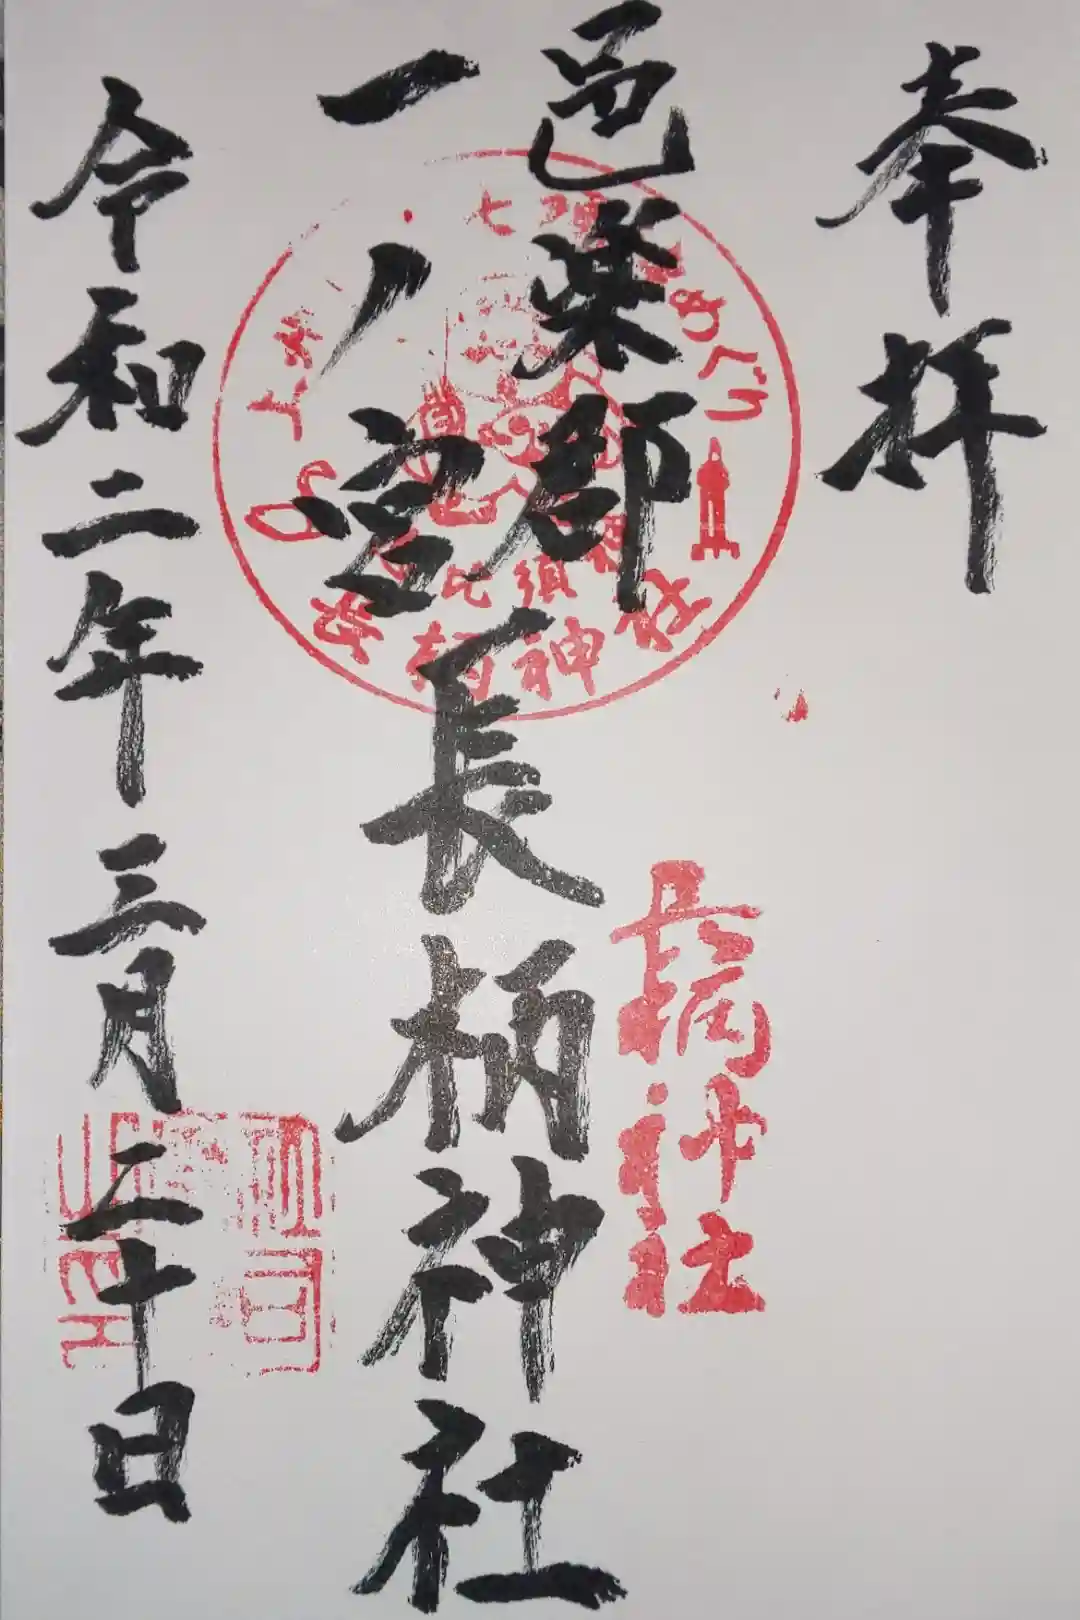 奉拝
邑楽郡
一ノ宮
長柄神社
令和二年三月二十日
上州
七
めぐり
長柄神社
長柄神社